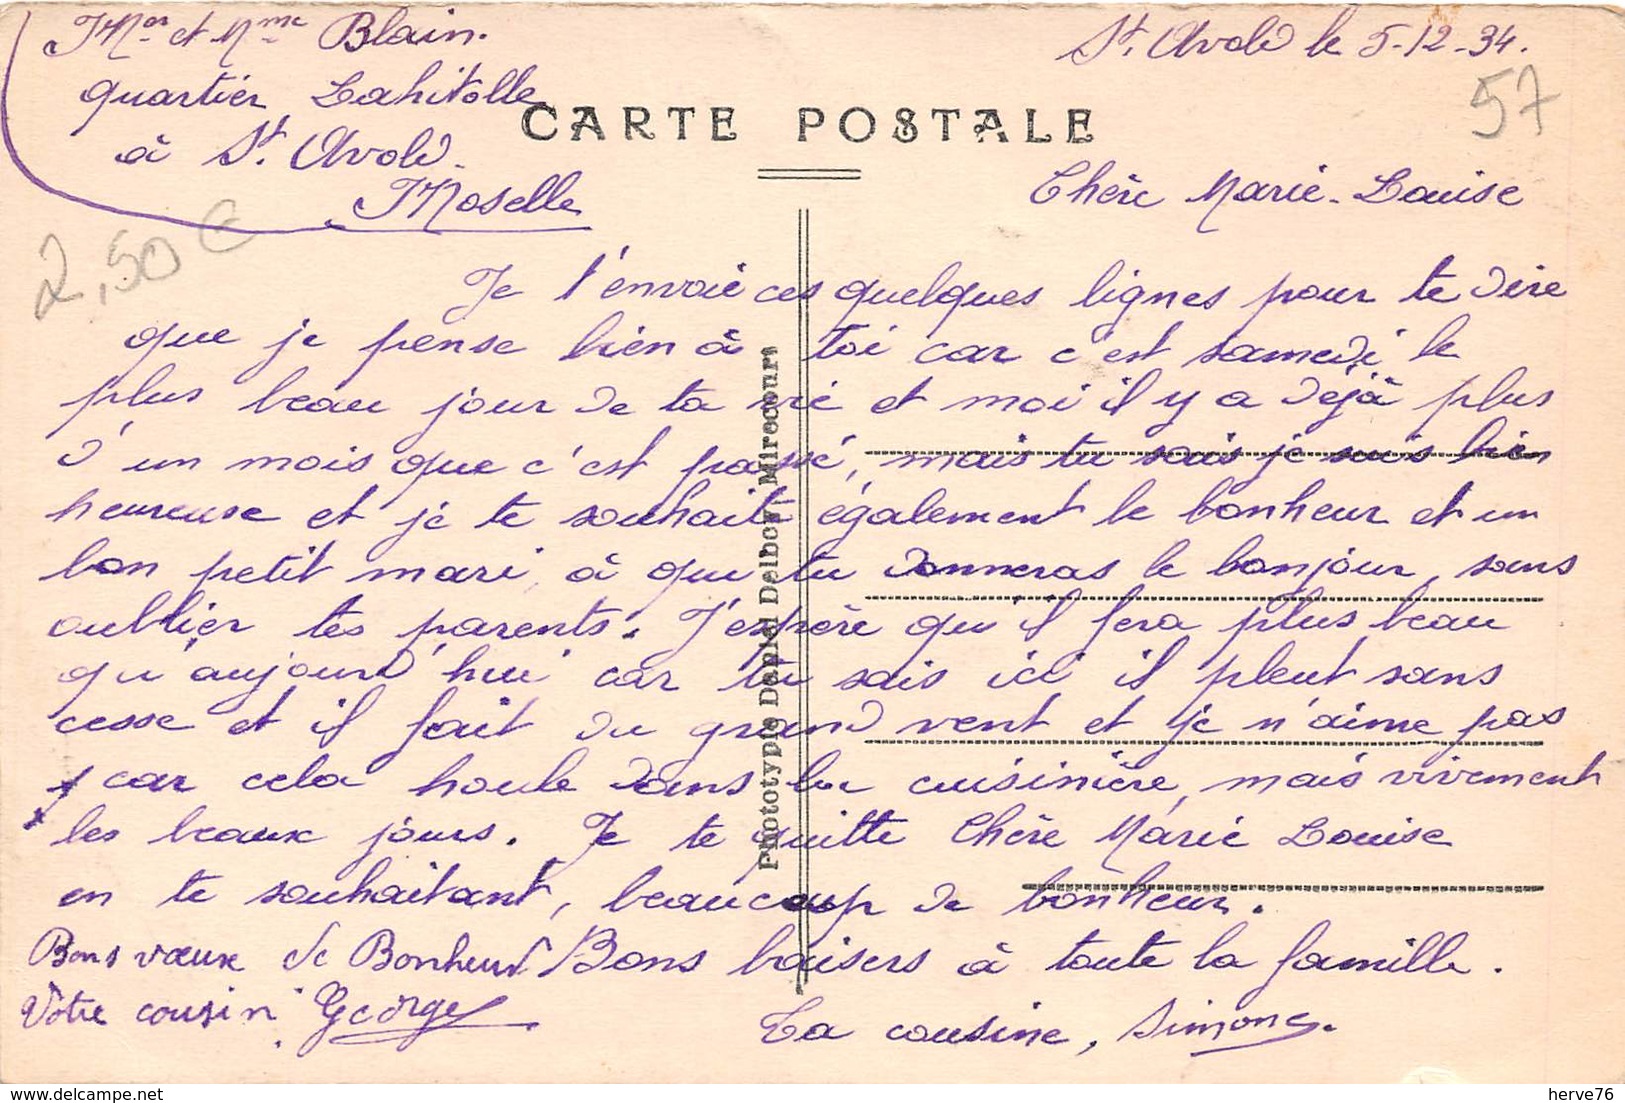 Mor et Mme Blain.
quartier Lahitolle
à St. Avold.
Moselle
St. Avold le 5-12-34.
57
CARTE POSTALE
2,50 €
Chère Marie-Louise
Je t'envoie ces quelques lignes pour te dire
que je pense bien à toi car c'est samedi le
plus beau jour de ta vie et moi il y a déjà plus
d'un mois que c'est passé, mais tu sais je suis bien
heureuse et je te souhaite également le bonheur et un
bon petit mari, à qui tu donneras le bonjour, sans
oublier tes parents. J'espère qu'il fera plus beau
qu'aujourd'hui car tu sais ici il pleut sans
cesse et il fait du grand vent et je n'aime pas
car cela houle dans la cuisinière, mais vivement
les beaux jours. Je te quitte Chère Marie Louise
en te souhaitant, beaucoup de bonheur.
Bons baisers à toute la famille.
Ta cousine, Simone.
Bons vœux de Bonheur
Votre cousin George
Phototypie Daniel Delboy, Mirecourt
herve76